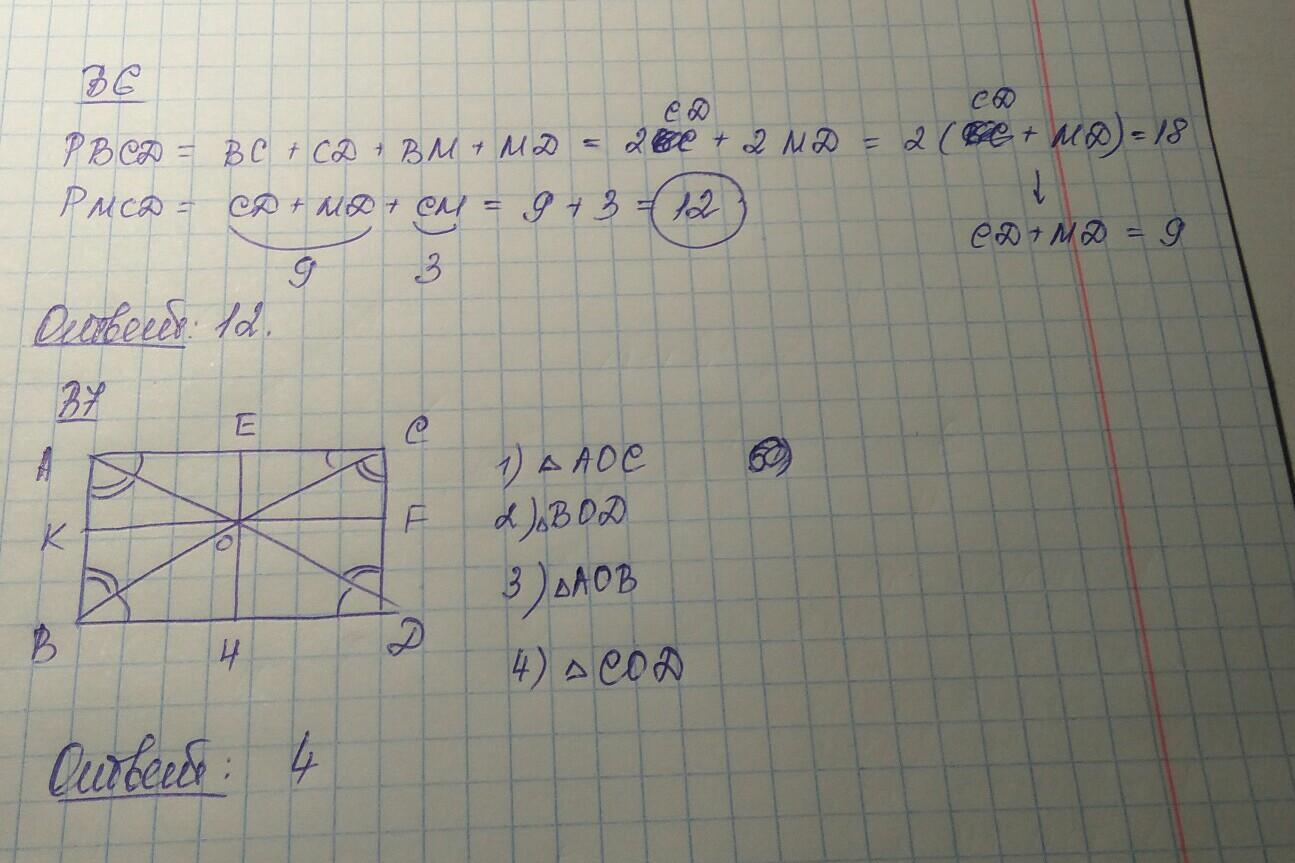 В6
CD CD
PBCD = BC + CD + BM + MD = 2 + 2 MD = 2 ( + MD) = 18
↓
PMCD = CD + MD + CM = 9 + 3 = 12
CD + MD = 9
9 3
Ответ: 12.
В7
E C
A
K F
O
B H D
1) △ AOC
2) △BOD
3) △AOB
4) △ COD
Ответ: 4